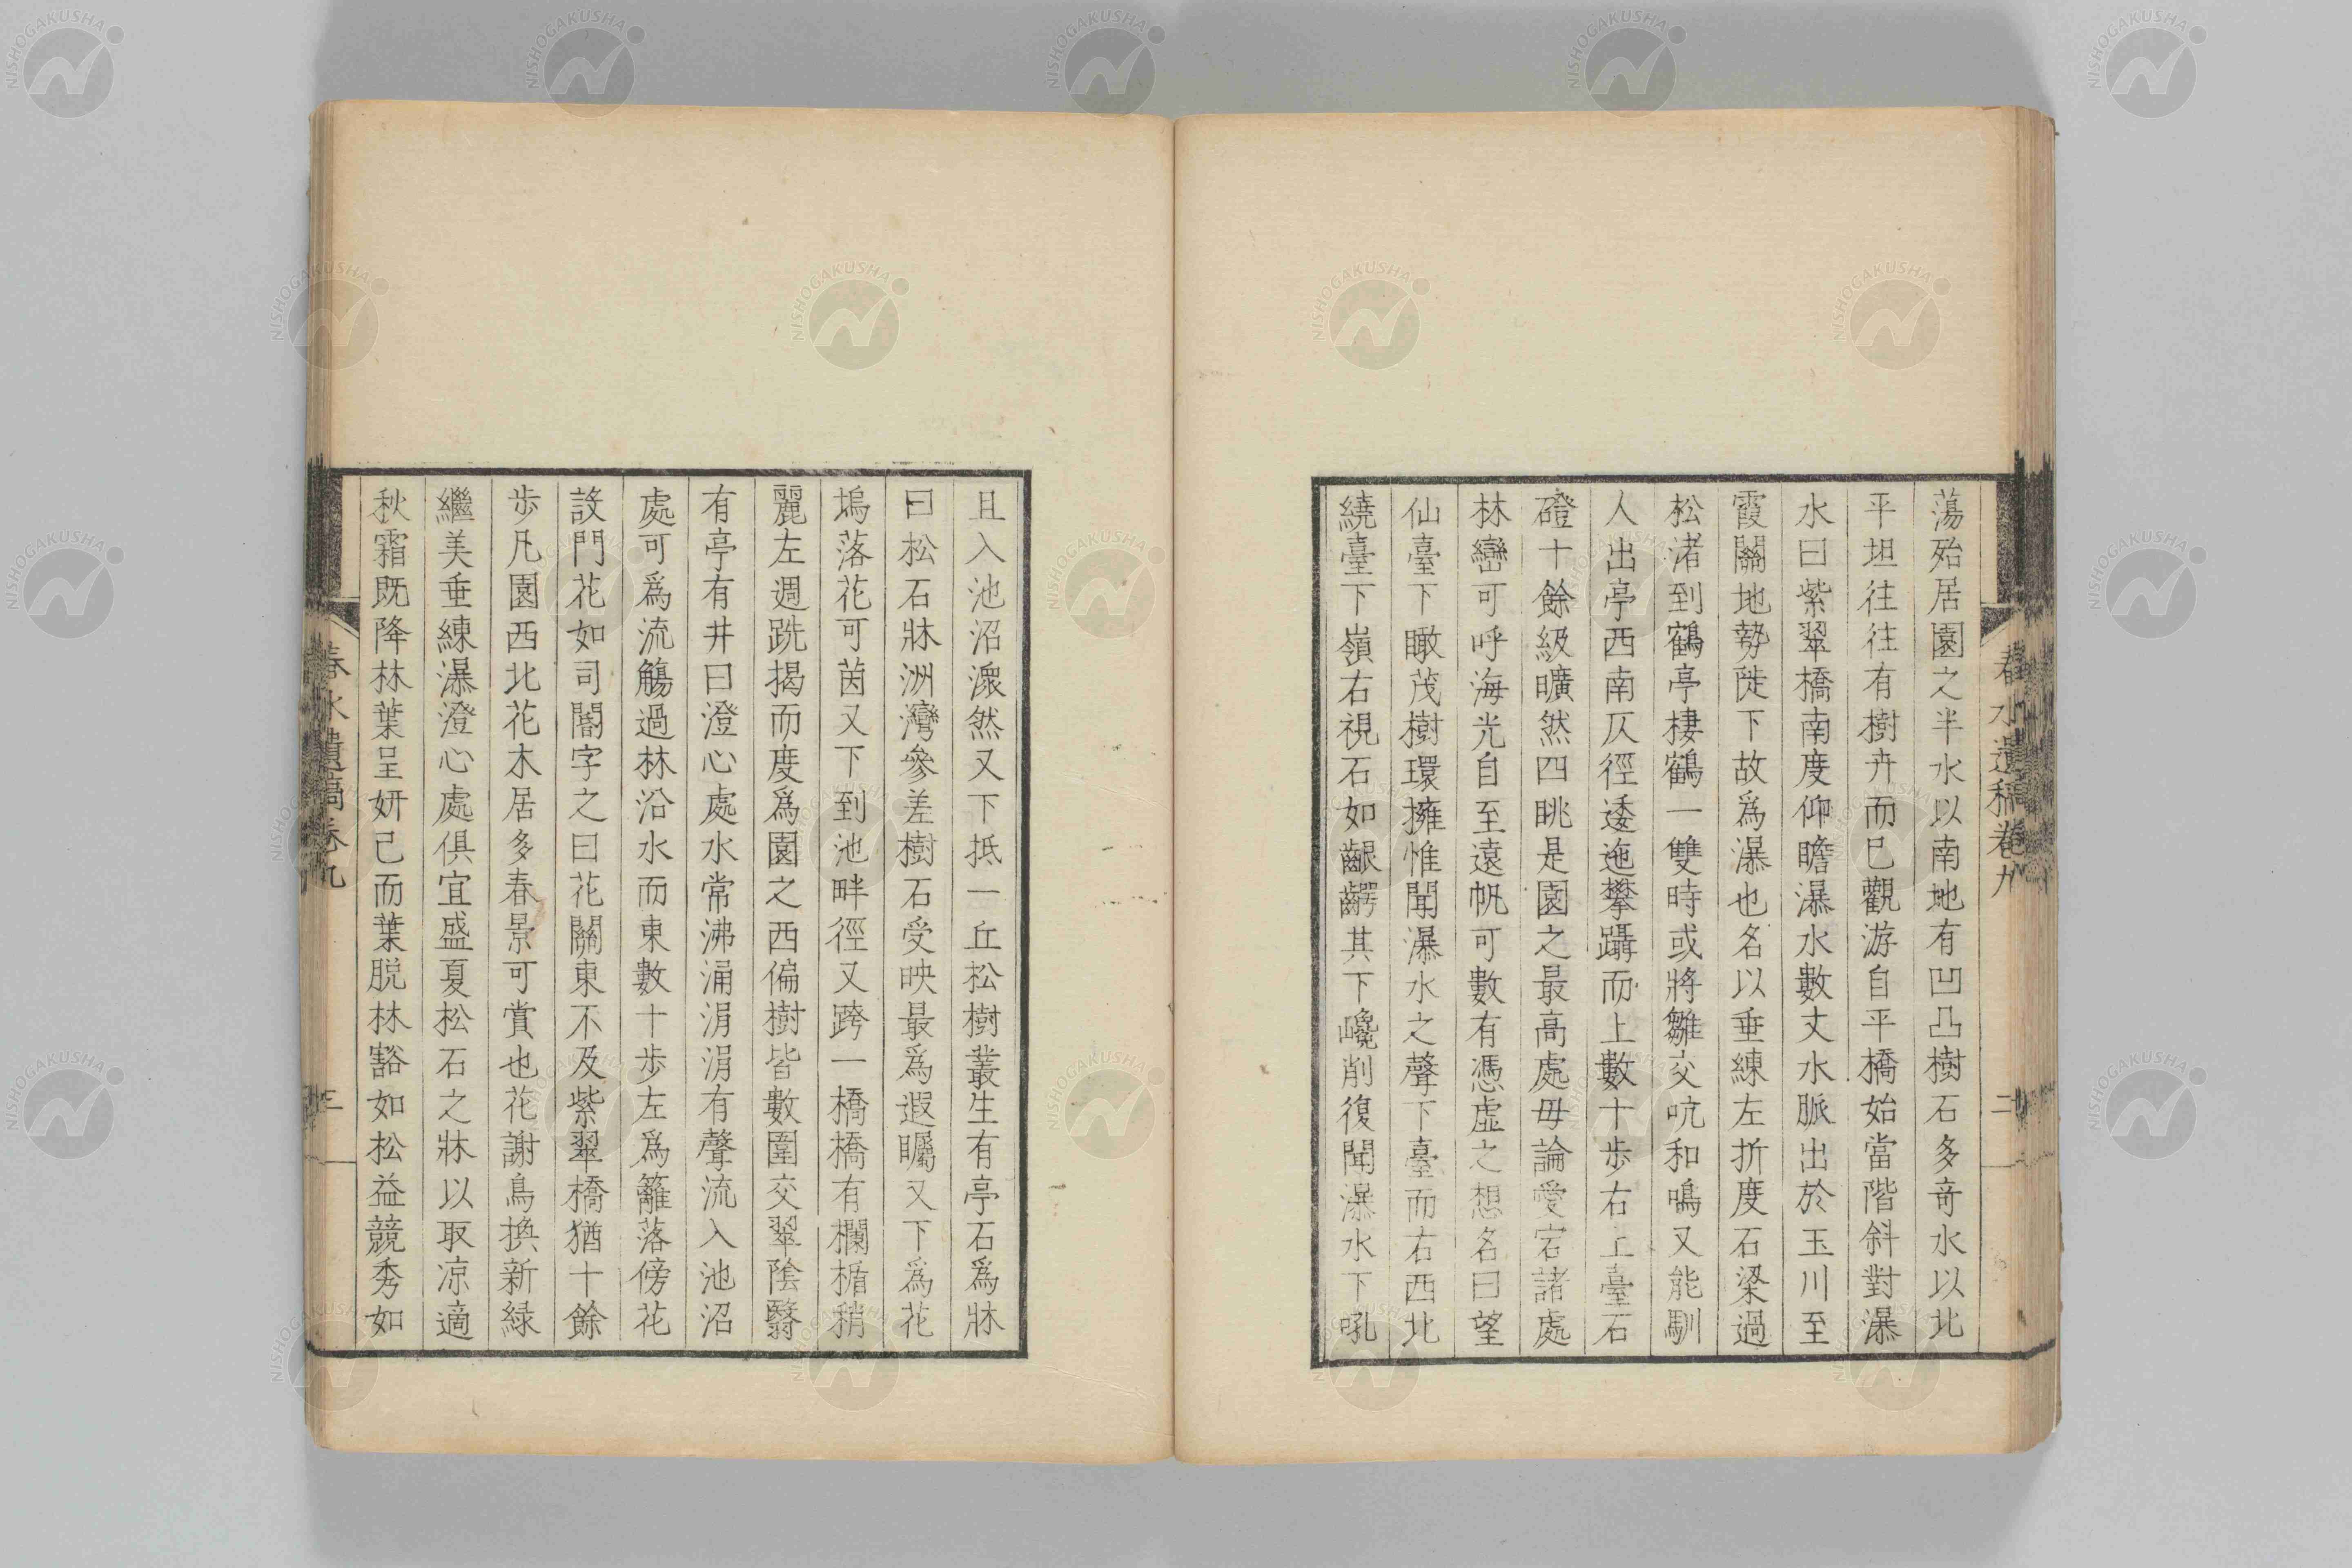 蕩殆居園之半水以南地有凹凸樹石多奇水以北
平坦往往有樹卉而已觀游自平橋始當階斜對瀑
水曰紫翠橋南度仰瞻瀑水數丈水脈出於玉川至
霞關地勢陡下故爲瀑也名以垂練左折度石梁過
松渚到鶴亭棲鶴一雙時或將雛交吭和鳴又能馴
人出亭西南仄徑逶迤攀躡而上數十歩右上臺石
磴十餘級曠然四眺是園之最高處毋論愛宕諸處
林巒可呼海光自至遠帆可數有憑虚之想名曰望
仙臺下瞰茂樹環擁惟聞瀑水之聲下臺而右西北
繞臺下嶺右視石如齦齶其下巉削復聞瀑水下吼
春水遺稿卷九
二
且入池沼渁然又下抵一丘松樹叢生有亭石爲牀
曰松石牀洲灣參差樹石受映最爲遐矚又下爲花
塢落花可茵又下到池畔徑又跨一橋橋有欄楯稍
麗左週跣揭而度爲園之西偏樹皆數圍交翠陰翳
有亭有井曰澄心處水常沸涌涓涓有聲流入池沼
處可爲流觴過林沿水而東數十歩左爲籬落傍花
設門花如司閽字之曰花關東不及紫翠橋猶十餘
歩凡園西北花木居多春景可賞也花謝鳥換新緑
繼美垂練瀑澄心處俱宜盛夏松石之牀以取凉適
秋霜既降林葉呈妍已而葉脱林豁如松益競秀如
春水遺稿卷九
三
NISHOGAKUSHA